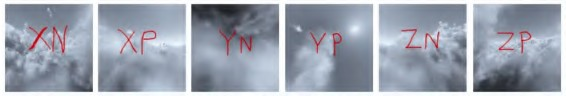 XN XP YN YP ZN ZP